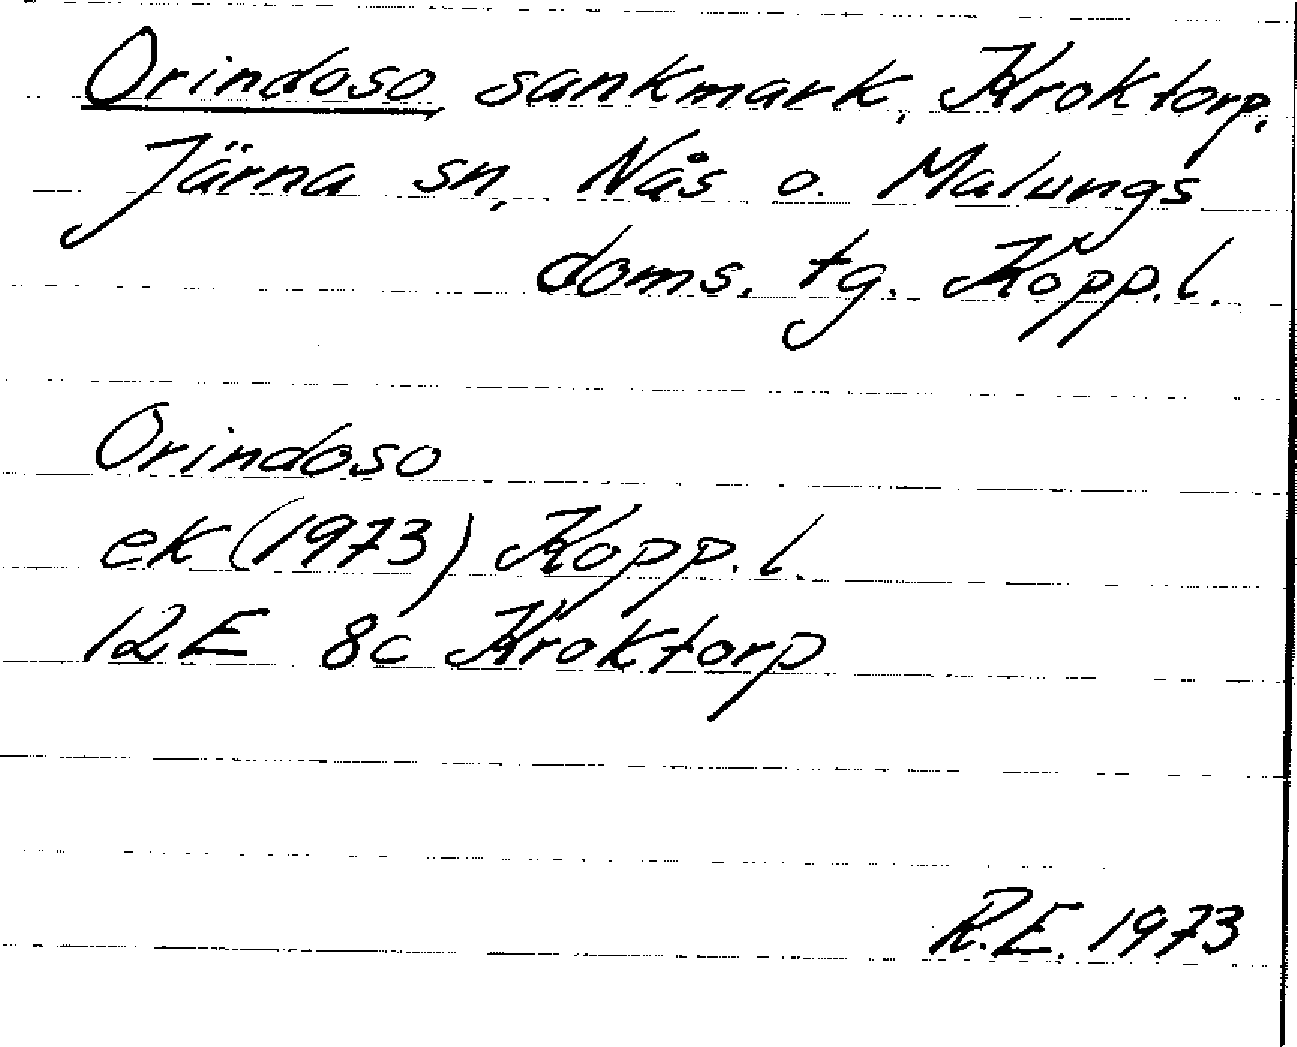 Orindoso, sankmark, Kroktorp,
Järna sn, Nås o. Malungs
doms. tg. Kopp.l.
Orindoso
ek (1973) Kopp.l.
12E 8c Kroktorp
R.E. 1973